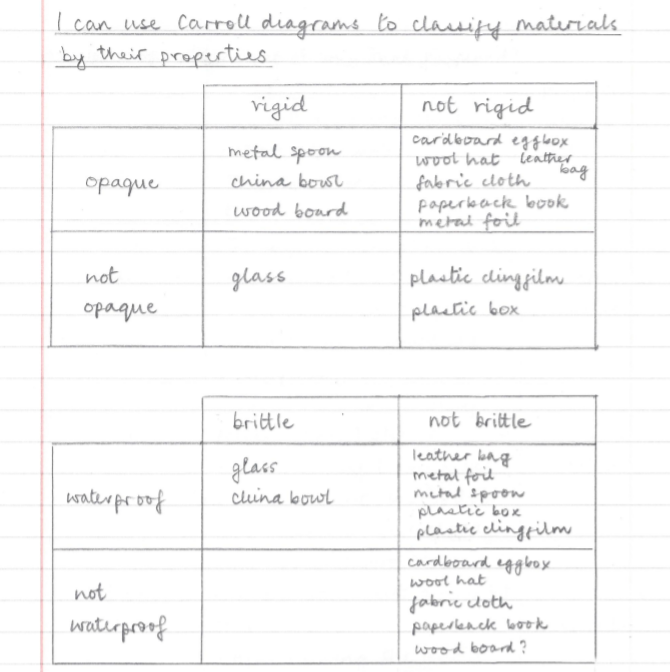 I can use Carroll diagrams to classify materials
by their properties
rigid not rigid
opaque
metal spoon
china bowl
wood board
cardboard eggbox
wool hat leather bag
fabric cloth
paperback book
metal foil
not
opaque
glass
plastic clingfilm
plastic box
brittle not brittle
waterproof
glass
china bowl
leather bag
metal foil
metal spoon
plastic box
plastic clingfilm
not
waterproof
cardboard eggbox
wool hat
fabric cloth
paperback book
wood board?